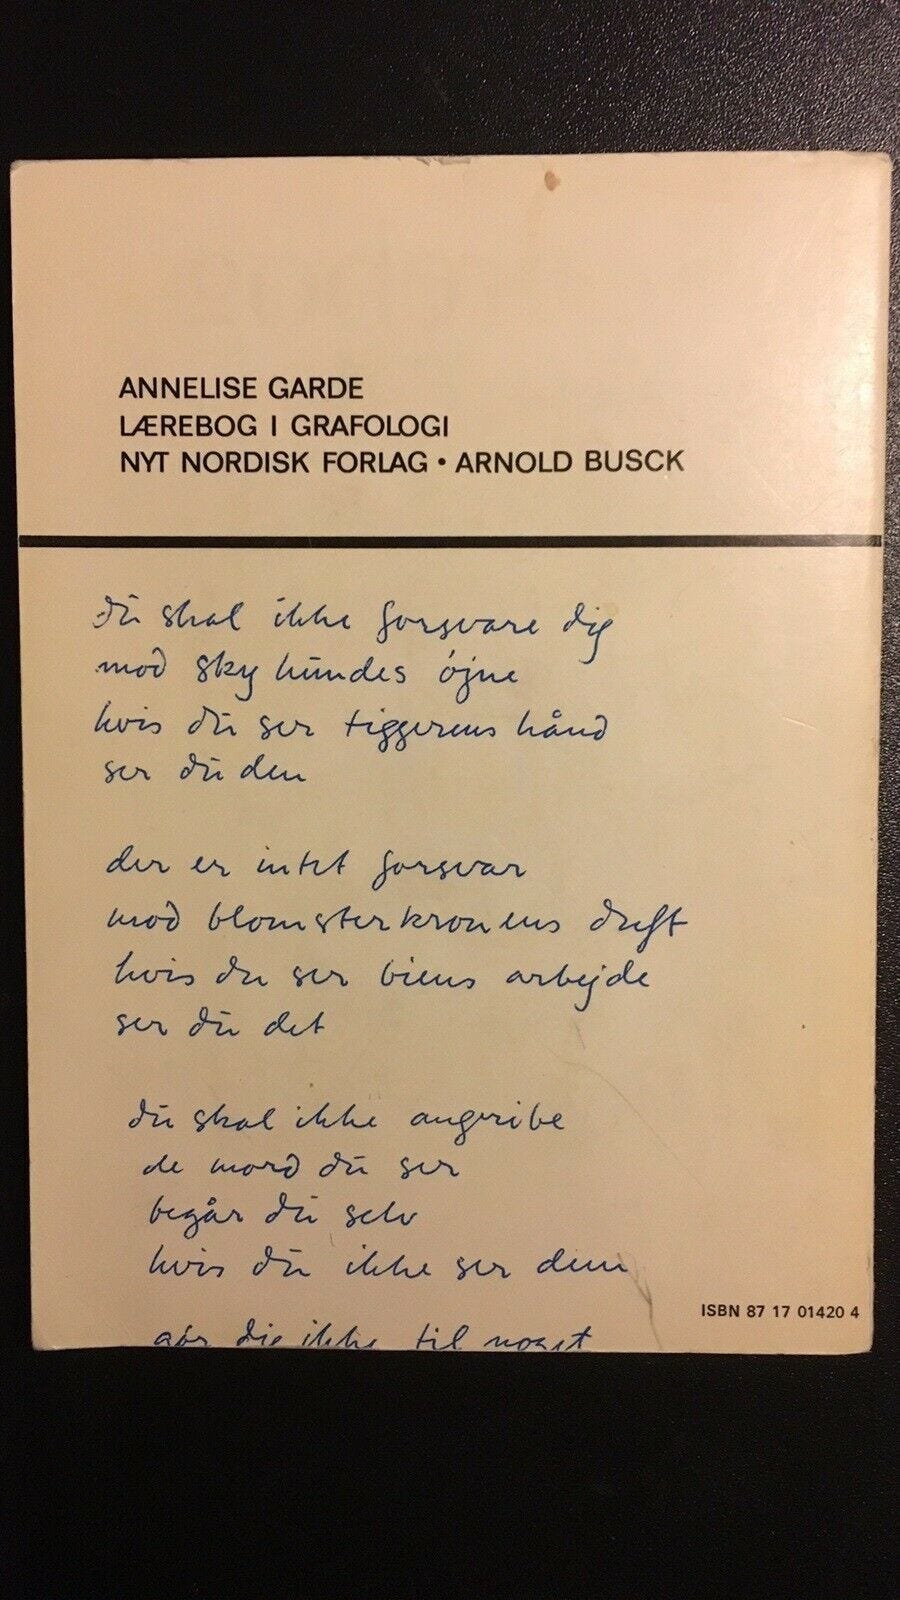 ANNELISE GARDE
LÆREBOG I GRAFOLOGI
NYT NORDISK FORLAG • ARNOLD BUSCK
du skal ikke forsvare dig
mod sky hundes øjne
hvis du ser tiggerens hånd
ser du den
der er intet forsvar
mod blomsterkronens duft
hvis du ser biens arbejde
ser du det
du skal ikke angribe
de mord du ser
begår du selv
hvis du ikke ser dem
gør dig ikke til noget
ISBN 87 17 01420 4